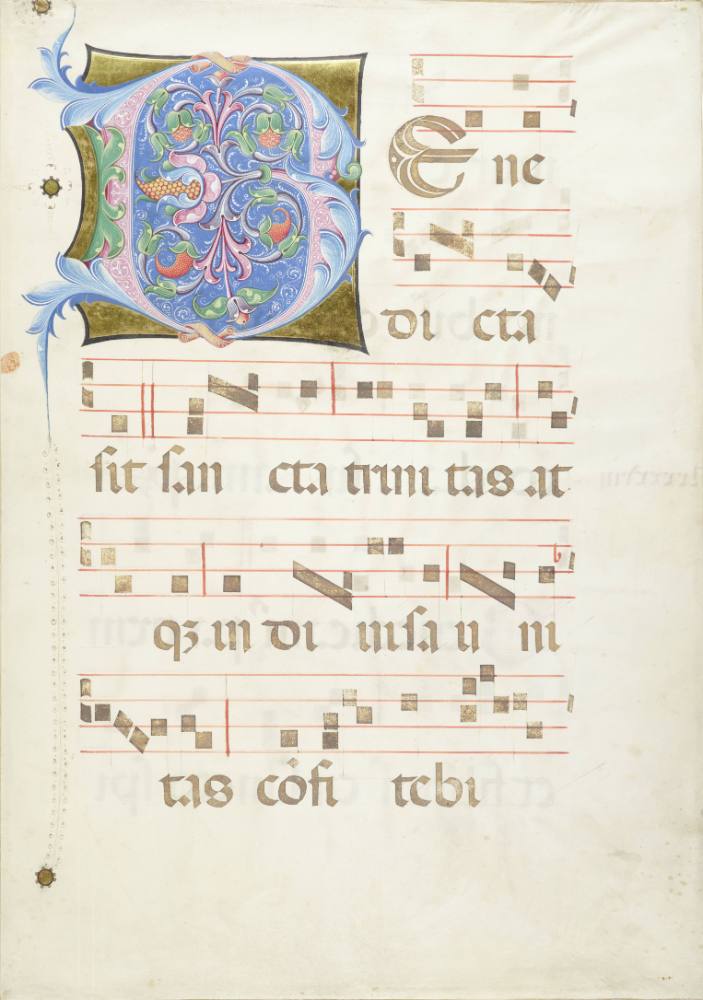 B E ne
di cta
ſit ſan cta trini tas at
qꝫ in di uiſa u ni
tas cōfi tebi